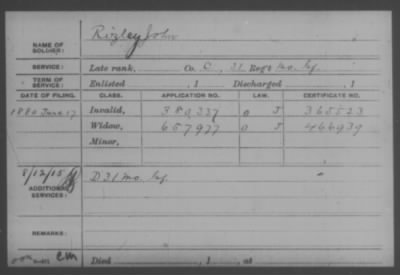 NAME OF SOLDIER: Rizley John
SERVICE: Late rank, Co. C, 31 Reg't Mo. Inf.
TERM OF SERVICE: Enlisted , 1 Discharged , 1
DATE OF FILING. CLASS. APPLICATION NO. LAW. CERTIFICATE NO.
1880 June 17 Invalid, 380,337 J 365523
Widow, 657977 J 466939
Minor,
8/12/15
ADDITIONAL SERVICES: D 31 Mo. Inf.
REMARKS:
em Died , 1 , at